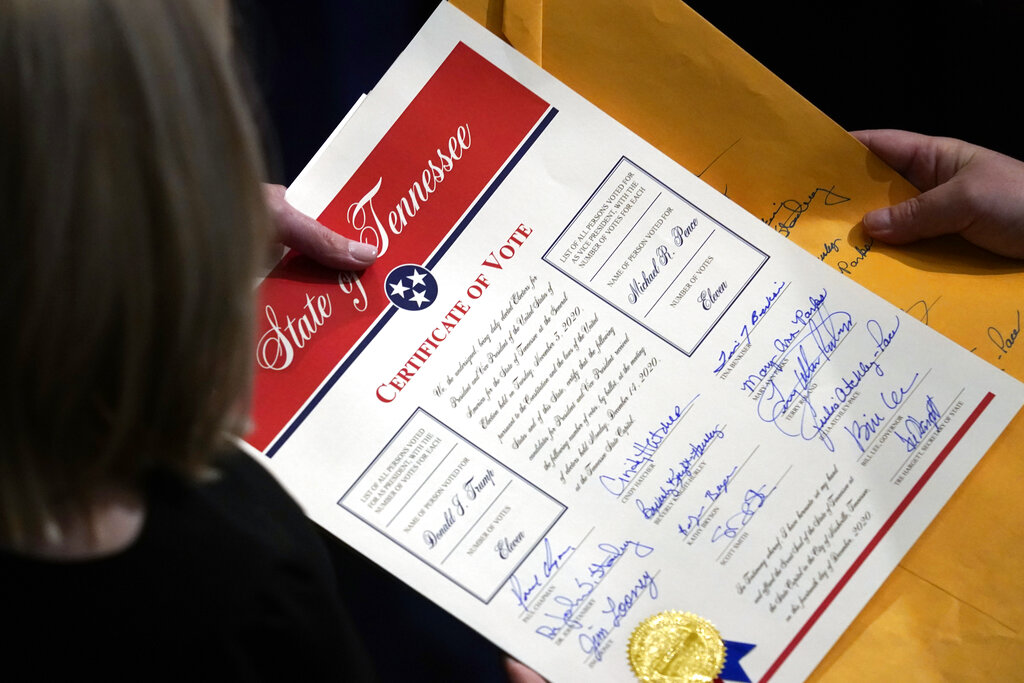 State of Tennessee
CERTIFICATE OF VOTE
We, the undersigned, being duly elected Electors for
President and Vice President of the United States of
America for the State of Tennessee at the General
Election held on Tuesday, November 3, 2020,
pursuant to the Constitution and the laws of the United
States and of this State, certify that the following
candidates for President and Vice President received
the following number of votes, by ballot, at the meeting
of electors held Monday, December 14, 2020,
at the Tennessee State Capitol.
LIST OF ALL PERSONS VOTED
FOR AS PRESIDENT, WITH THE
NUMBER OF VOTES FOR EACH
NAME OF PERSON VOTED FOR
Donald J. Trump
NUMBER OF VOTES
Eleven
LIST OF ALL PERSONS VOTED FOR
AS VICE PRESIDENT, WITH THE
NUMBER OF VOTES FOR EACH
NAME OF PERSON VOTED FOR
Michael R. Pence
NUMBER OF VOTES
Eleven
Paul Chapman
PAUL CHAPMAN
Dr. John S. Stanbery
DR. JOHN STANBERY
Jim Looney
Cindy Hatcher
CINDY HATCHER
Beverly Knight-Hurley
BEVERLY KNIGHT-HURLEY
KATHY BRYSON
SCOTT SMITH
Tina J Benkiser
TINA BENKISER
Mary Ann Parks
MARY ANN PARKS
TERRY ROLAND
Julia Atchley-Pace
JULIA ATCHLEY PACE
Bill Lee
BILL LEE, GOVERNOR
TRE HARGETT, SECRETARY OF STATE
In Testimony whereof I have hereunto set my hand
and affixed the Great Seal of the State of Tennessee at
the State Capitol in the City of Nashville, Tennessee
on this fourteenth day of December, 2020.
Parks
-Pace